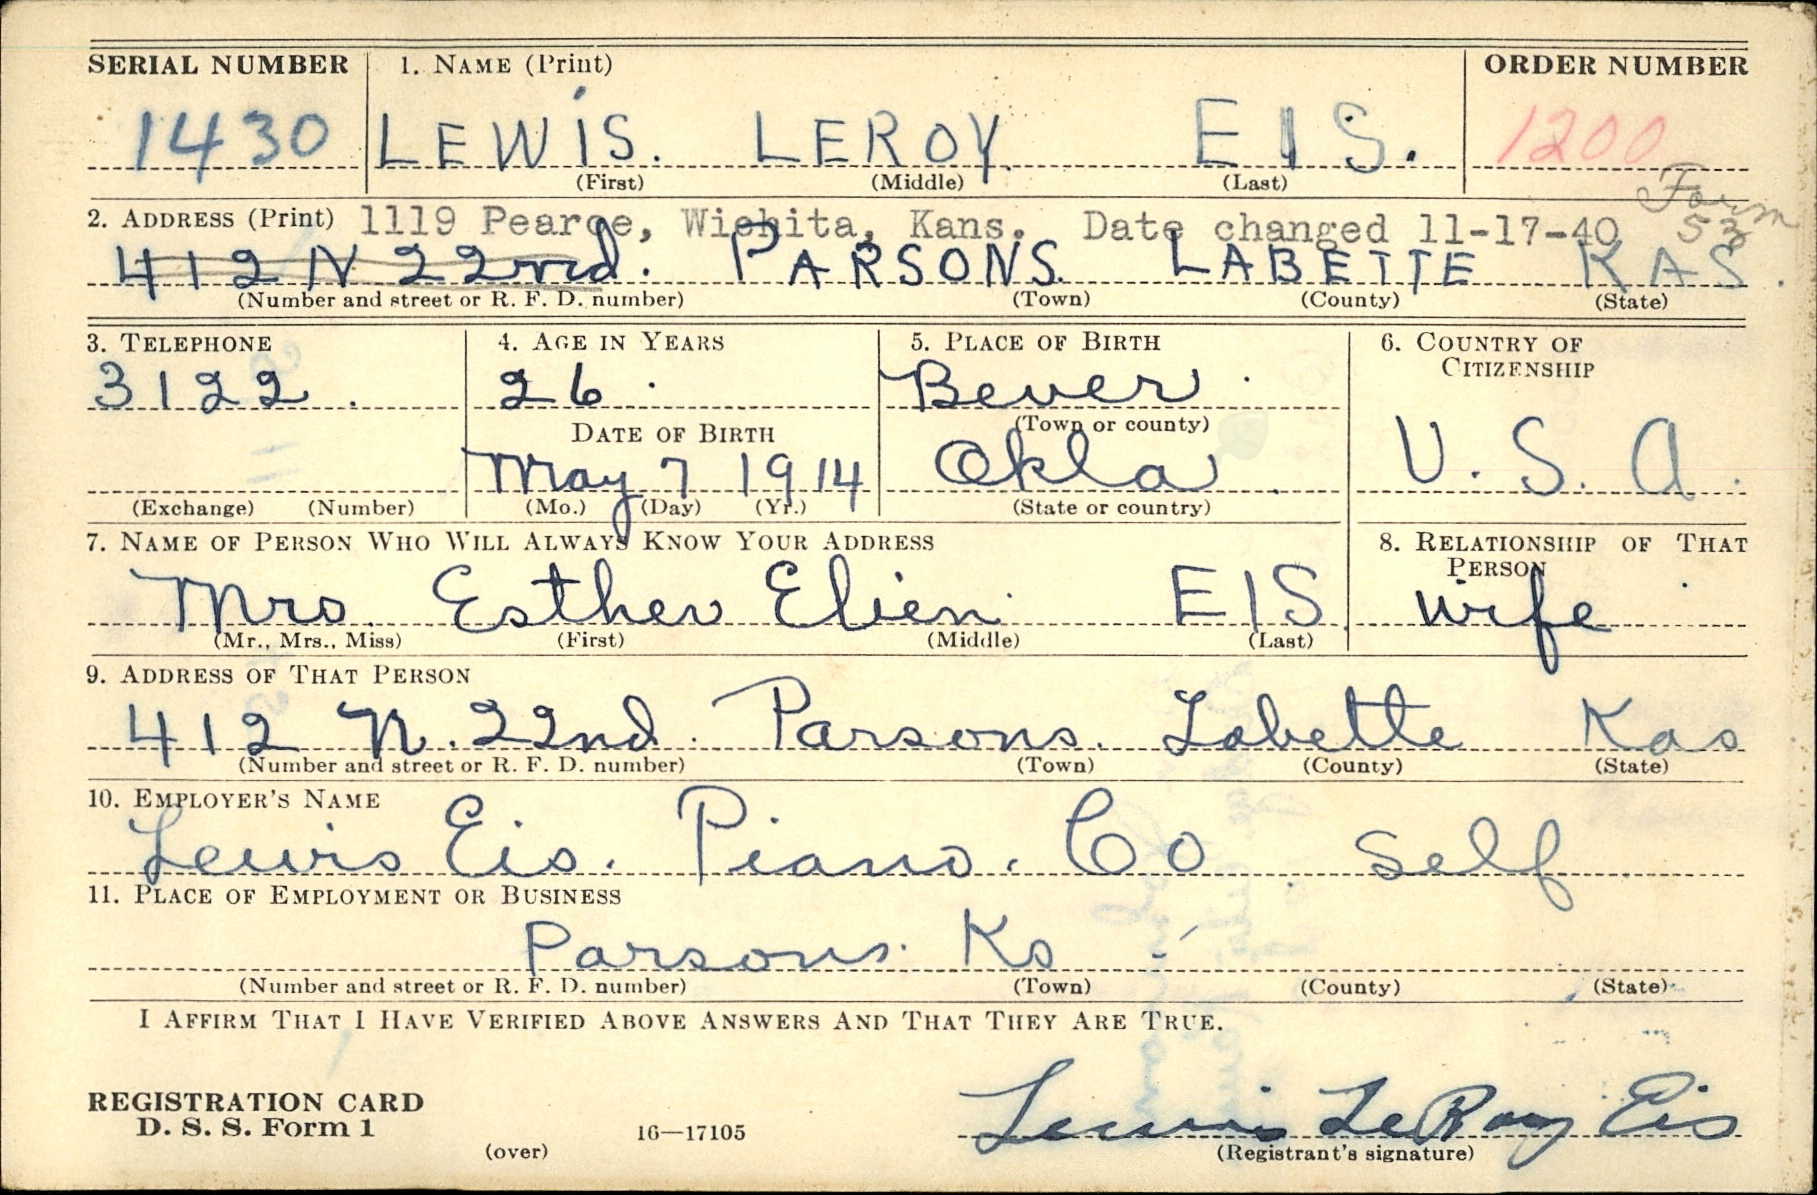 SERIAL NUMBER 1. NAME (Print) ORDER NUMBER
1430 LEWIS. LEROY. EIS. 1200
(First) (Middle) (Last)
Form 53
2. ADDRESS (Print) 1119 Pearce, Wichita, Kans. Date changed 11-17-40
412 N 22nd. PARSONS. LABETTE KAS.
(Number and street or R. F. D. number) (Town) (County) (State)
3. TELEPHONE 4. AGE IN YEARS 5. PLACE OF BIRTH 6. COUNTRY OF CITIZENSHIP
3122. 26. Bever.
DATE OF BIRTH (Town or county)
May 7 1914 Okla. U. S. A.
(Exchange) (Number) (Mo.) (Day) (Yr.) (State or country)
7. NAME OF PERSON WHO WILL ALWAYS KNOW YOUR ADDRESS 8. RELATIONSHIP OF THAT PERSON
Mrs. Esther Elien EIS wife
(Mr., Mrs., Miss) (First) (Middle) (Last)
9. ADDRESS OF THAT PERSON
412 N. 22nd. Parsons. Labette Kas
(Number and street or R. F. D. number) (Town) (County) (State)
10. EMPLOYER'S NAME
Lewis Eis. Piano. Co. Self
11. PLACE OF EMPLOYMENT OR BUSINESS
Parsons. Ks
(Number and street or R. F. D. number) (Town) (County) (State)
I AFFIRM THAT I HAVE VERIFIED ABOVE ANSWERS AND THAT THEY ARE TRUE.
REGISTRATION CARD
D. S. S. Form 1 16—17105 Lewis LeRoy Eis
(over) (Registrant's signature)